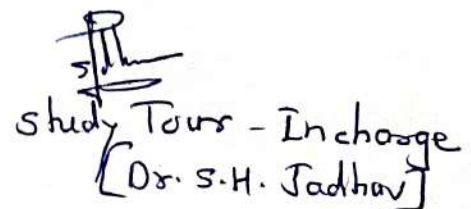 Study Tour - Incharge
[Dr. S.H. Jadhav]